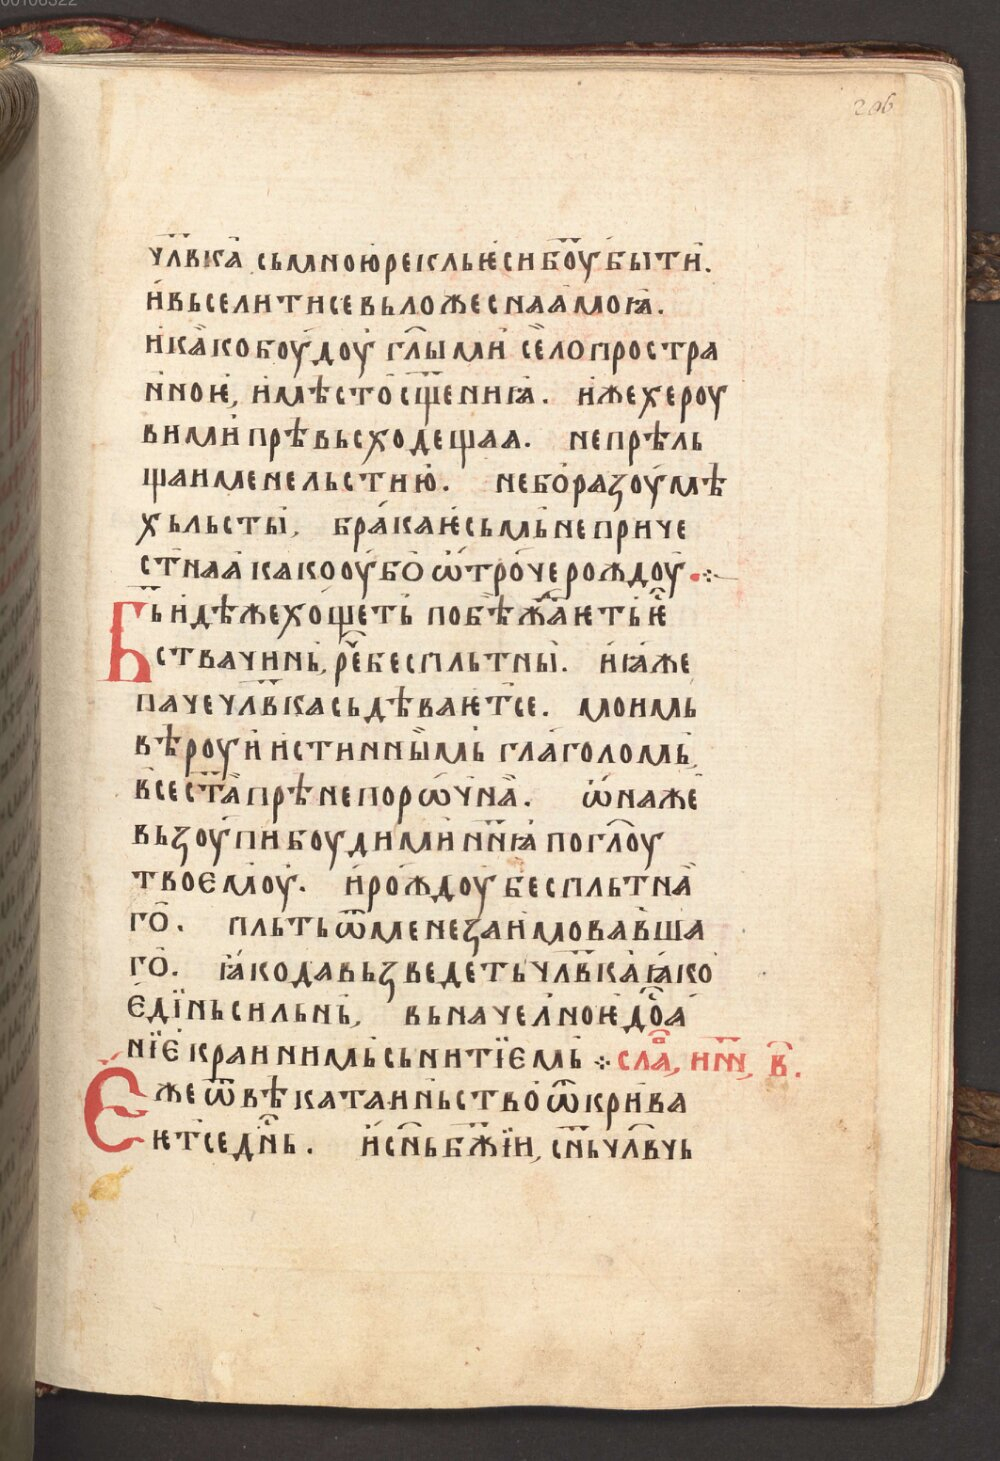 206
чл҃вкꙗ̀ сьмною̀ рекль ѥ҆си бо҃у быти.
и҆вьселитисе вьложесна моꙗ̀.
и҆ка̀ко боу́доу гл҃ы ми село̀ простра
н̑ноѥ, и҆мѣсто сщ҃ениꙗ̀. и҆же хероу
вими прѣвьсходещаа. не прѣль
щаи мене льстию̀. не бо̀ разоу́мѣ
хь льсты, бра́ка ѥ҆сьмь не приче
стнаа како оу҆бо ѿтро́че рождоу
Бь҃ и҆дѣже хо́щеть побѣжаѥть ѥ
ства чинь, рече бесплътны. и҆ꙗже
паче чл҃вка сьдѣваѥтсе. моимь
вѣроуи и҆стинныимь гла́голомь,
все ст҃аа прѣнепорѡ́чнаа. ѡ҆на же
вьзоу́пи боуди ми нн҃ꙗ по гл҃оу
твоемоу. и҆рождоу бесплътна
го. пльть ѿ мене заимовавша
го. ꙗко да вьзведеть чл҃вка ꙗко
е҆ди́нь сильнь, вь начелноѥ до
нїе краинимь сьнитїемь сла, инн, в.
Еже ѿ вѣка таинство ѿкрива
ѥтсе днь. и҆ сн҃ь бж҃їи, сн҃ь чл҃вчь